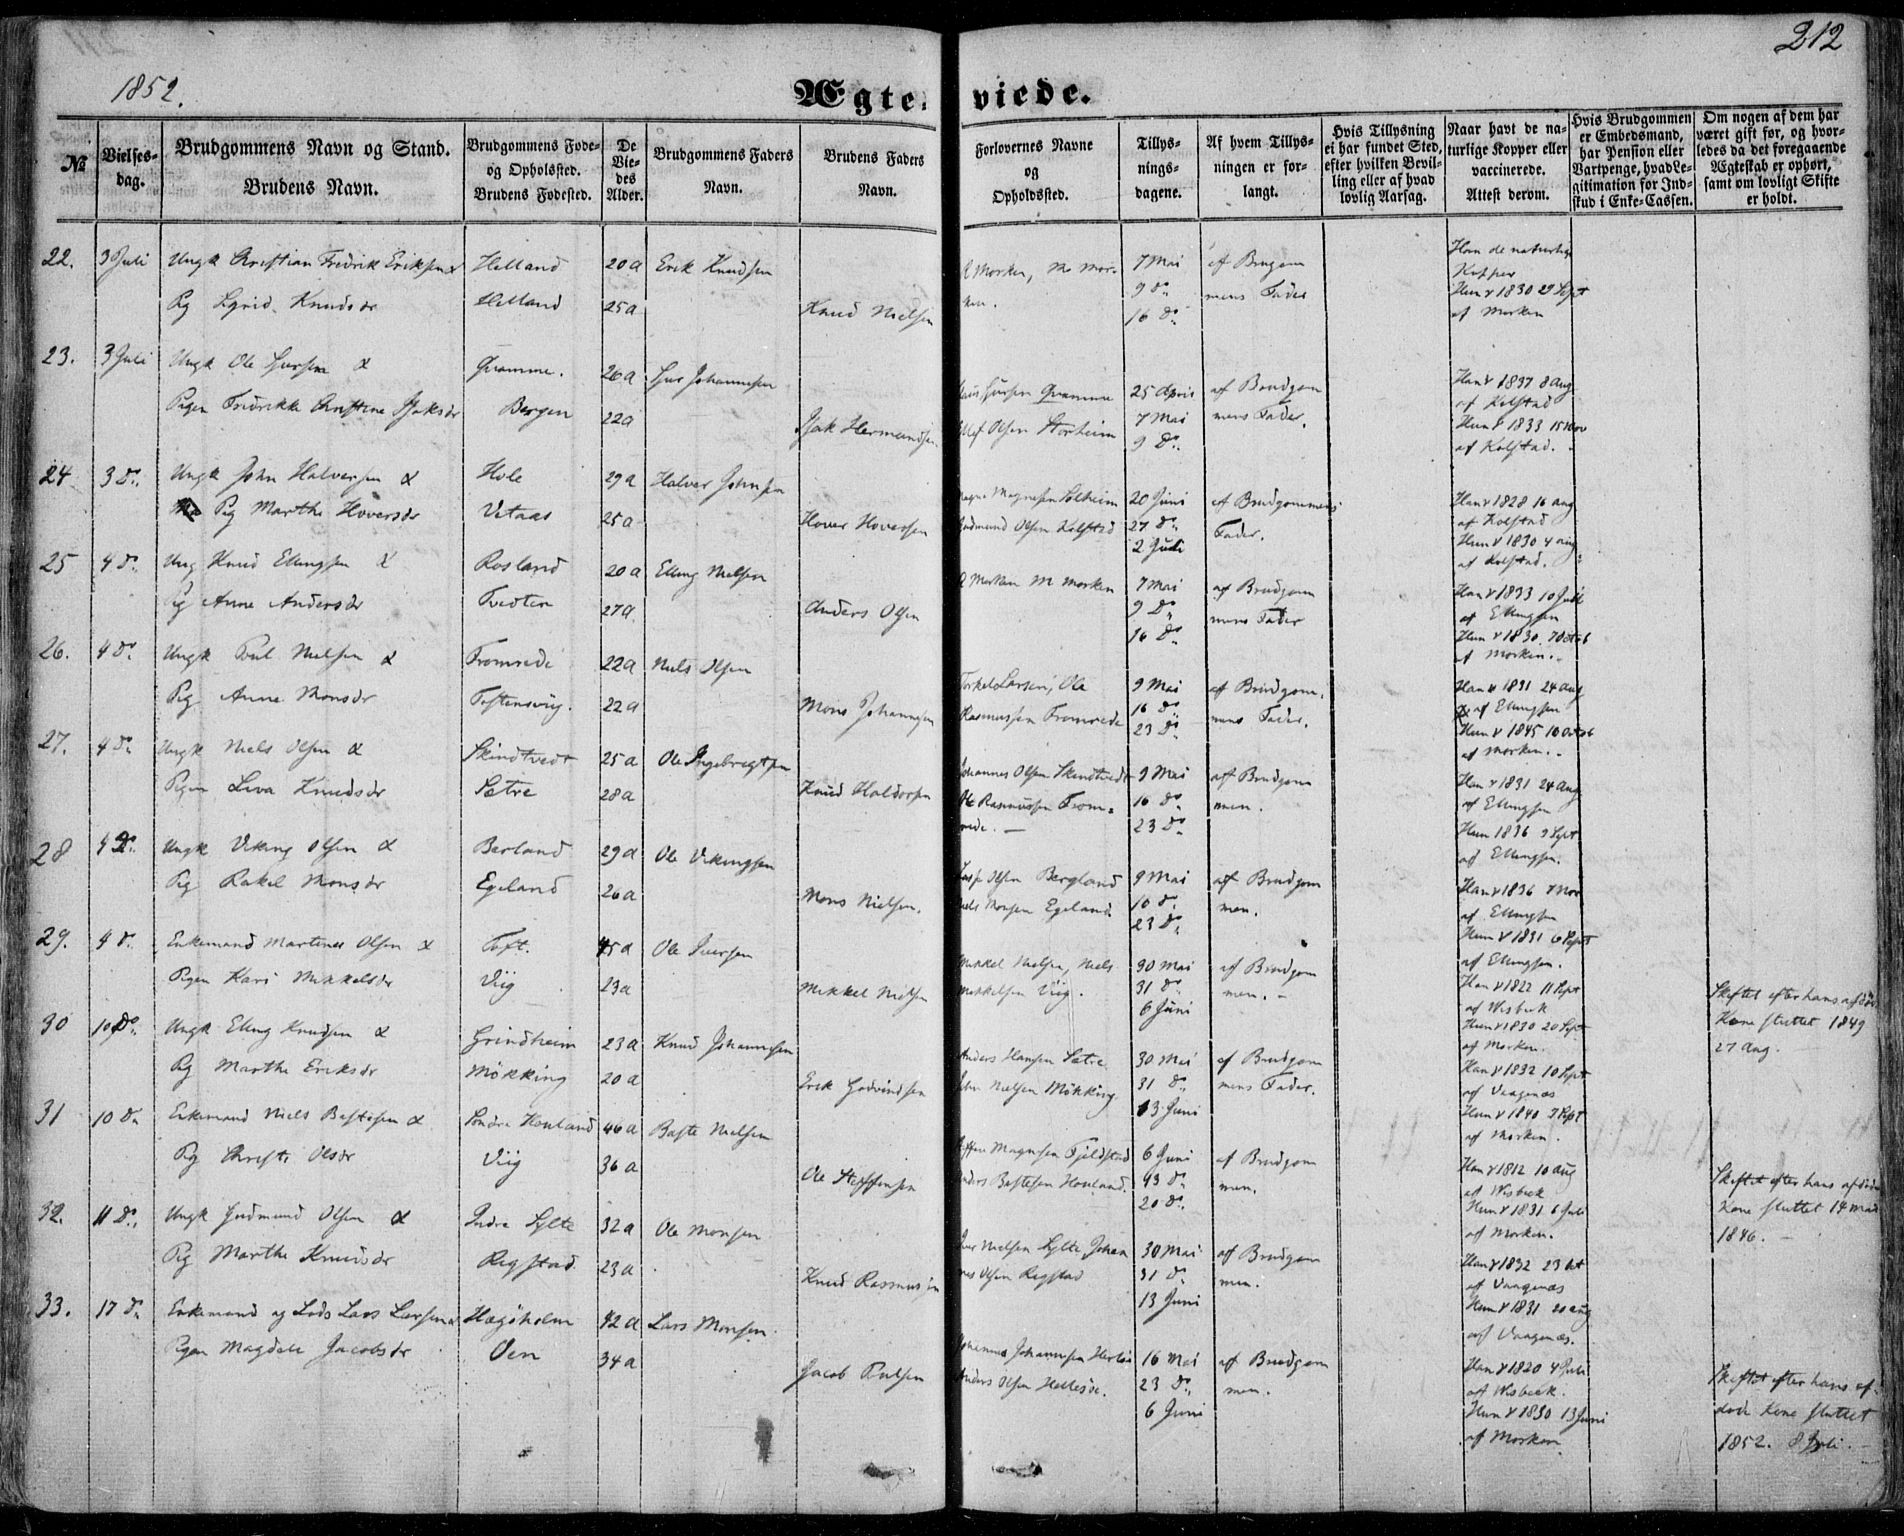 212
1852.
Ægteviede.
No
Vielsesdag.
Brudgommens Navn og Stand.
Brudens Navn.
Brudgommens Føde- og Opholdsted.
Brudens Fødested.
De Viedes Alder.
Brudgommens Faders Navn.
Brudens Faders Navn.
Forlovernes Navne og Opholdssted.
Tillysningsdagene.
Af hvem Tillysningen er forlangt.
Hvis Tillysning ei har fundet Sted, efter hvilken Bevilling eller af hvad lovlig Aarsag.
Naar havt de naturlige Kopper eller vaccinerede. Attest derom.
Hvis Brudgommen er Embedsmand, har Pension eller Vartpenge, hvad Legitimation for Indskud i Enke-Cassen.
Om nogen af dem har været gift før, og hvorledes da det foregaaende Ægteskab er ophørt, samt om lovligt Skifte er holdt.
22. 3 Juli Ungk Christian Fredrik Eriksen & Helland 20a Erik Knudsen
Pg Sigrid Knudsdr Helland 25a Knud Nielsen
Morken, M Morken. 7 Mai 9 do 16 do af Brugommens Fader
Han de naturlige Kopper
Hun v 1830 29 Sept af Morken
23. 3 Juli Ungk Ole &
Qvamme. 26a Johannesen
Pigen Fredrikke Christine Bergen 22a Hermundsen
Qvamme 25 April af Brudgommens Fader.
Olsen Storheim 7 Mai 9 do
Han v 1837 8 Aug af Kolstad
Hun v 1833 15 Nov af Kolstad.
24 3 do Ungk John Halversen & Hole 29a Halver Johnsen
Pg Marthe Hoversdr Vetaas 25a Hover Hoversen
Magne Magnesen Solheim 20 Juni af Brudgommens Fader.
Gudmund Olsen Kolstad 27 do 2 Juli
Han v 1828 16 aug af Kolstad
Hun v 1830 4 aug af Kolstad.
25 4 do Ung Knud Ellingsen & Rosland 20a Elling Nielsen
Pg Anne Andersdr Tvedten 27a Anders Olsen
Morken M Morken 7 Mai 9 do 16 do af Brudgommens Fader
Han v 1833 10 Juli af Ellingsen
Hun v 1830 af Morken.
26. 4 do Ungk Poul Nielsen & Fromrede 22a Niels Olsen
Pig Anne Monsdr 22a Mons Johannesen
Torkel Larsen, Ole Rasmussen Fromrede 9 Mai 16 do 23 do af Brudgommens Fader.
Han v 1831 24 Aug af Ellingsen
Hun v 1845 10 Octob af Morken.
27. 4 do Ungk Niels Olsen & Skindtvedt 25a Ole Ingebregtsen
Pigen Knudsdr Sætre 28a Knud Haldorsen
Johannes Olsen Skindtvedt 9 Mai af Brudgommen.
Ole Rasmussen Fromrede. 16 do 23 do
Han v 1831 24 Aug af Ellingsen
Hun 1836 9 Sept af Ellingsen.
28 4 do Ungk Viking Olsen & Berland 29a Ole Vikingsen
Pig Rakel Monsdr Egeland 26a Mons Nielsen.
Olsen Bergland 9 Mai af Brudgommen.
Niels Monsen Egeland 16 do 23 do
Han v 1836 af Ellingsen
Hun v 1831 6 Sept af Ellingsen.
29. 4 do Enkemand Martines Olsen & Toft. 45a Ole Iversen
Pigen Kari Mikkelsdr Viig 23a Mikkel Nielsen
Mikkel Nielsen, Niels Mikkelsen Viig. 30 Mai 31 do 6 Juni af Brudgommen.
Han v 1822 11 Sept af Wisbeck
Hun v 1830 20 Sept af Morken.
Skiftet efter hans afdøde Kone sluttet 1849 27 Aug.
30 10 do Ungk Elling Knudsen & Grindheim 23a Knud Johannesen
Pg Marthe Eriksdr Møkking 20a Erik Godvindsen
Anders Hansen Sætre 30 Mai af Brudgommens Fader.
John Nielsen Møkking 31 do 13 Juni
Han v 1832 10 Sept af Vaagenæs
Hun v 1840 9 Sept af Morken.
31 10 do Enkemand Niels Bastesen & Søndre Houland 46a Baste Nielsen
Pg Christi Olsdr Viig 36a Ole Steffensen
Steffen Magnesen Fjeldstad 6 Juni af Brudgommen.
Anders Bastesen Houland. 13 do 20 do
Han v 1812 10 Aug af Wisbeck
Hun v 1831 6 Juli af Morken.
Skiftet efter hans afdøde Kone sluttet 14 Mai 1846.
32. 11 do Ungk Gudmund Olsen & Indre Sylte 32a Ole Monsen
Pig Marthe Knudsdr Rigstad 23a Knud Rasmussen
Iver Nielsen Sylte, Johannes Olsen Rigstad 30 Mai 31 do 13 Juni af Brudgommen.
Han v 1832 23 Oct af Vaagenæs
Hun v 1831 20 aug af Vaagenæs.
33. 17 do Enkemand og Lods Lars Larsen & Hægøholm 42a Lars Monsen.
Pigen Magdele Jacobsdr Oen 34a Jacob Pulsen
Johannes Johannesen 16 Mai af Brudgommen.
Anders Olsen Hellesøe. 23 do 6 Juni
Han v 1820 4 Juli af Wisbeck.
Hun v 1830 13 Juni af Morken
Skiftet efter hans afdøde Kone sluttet 1852. 8 Juli.